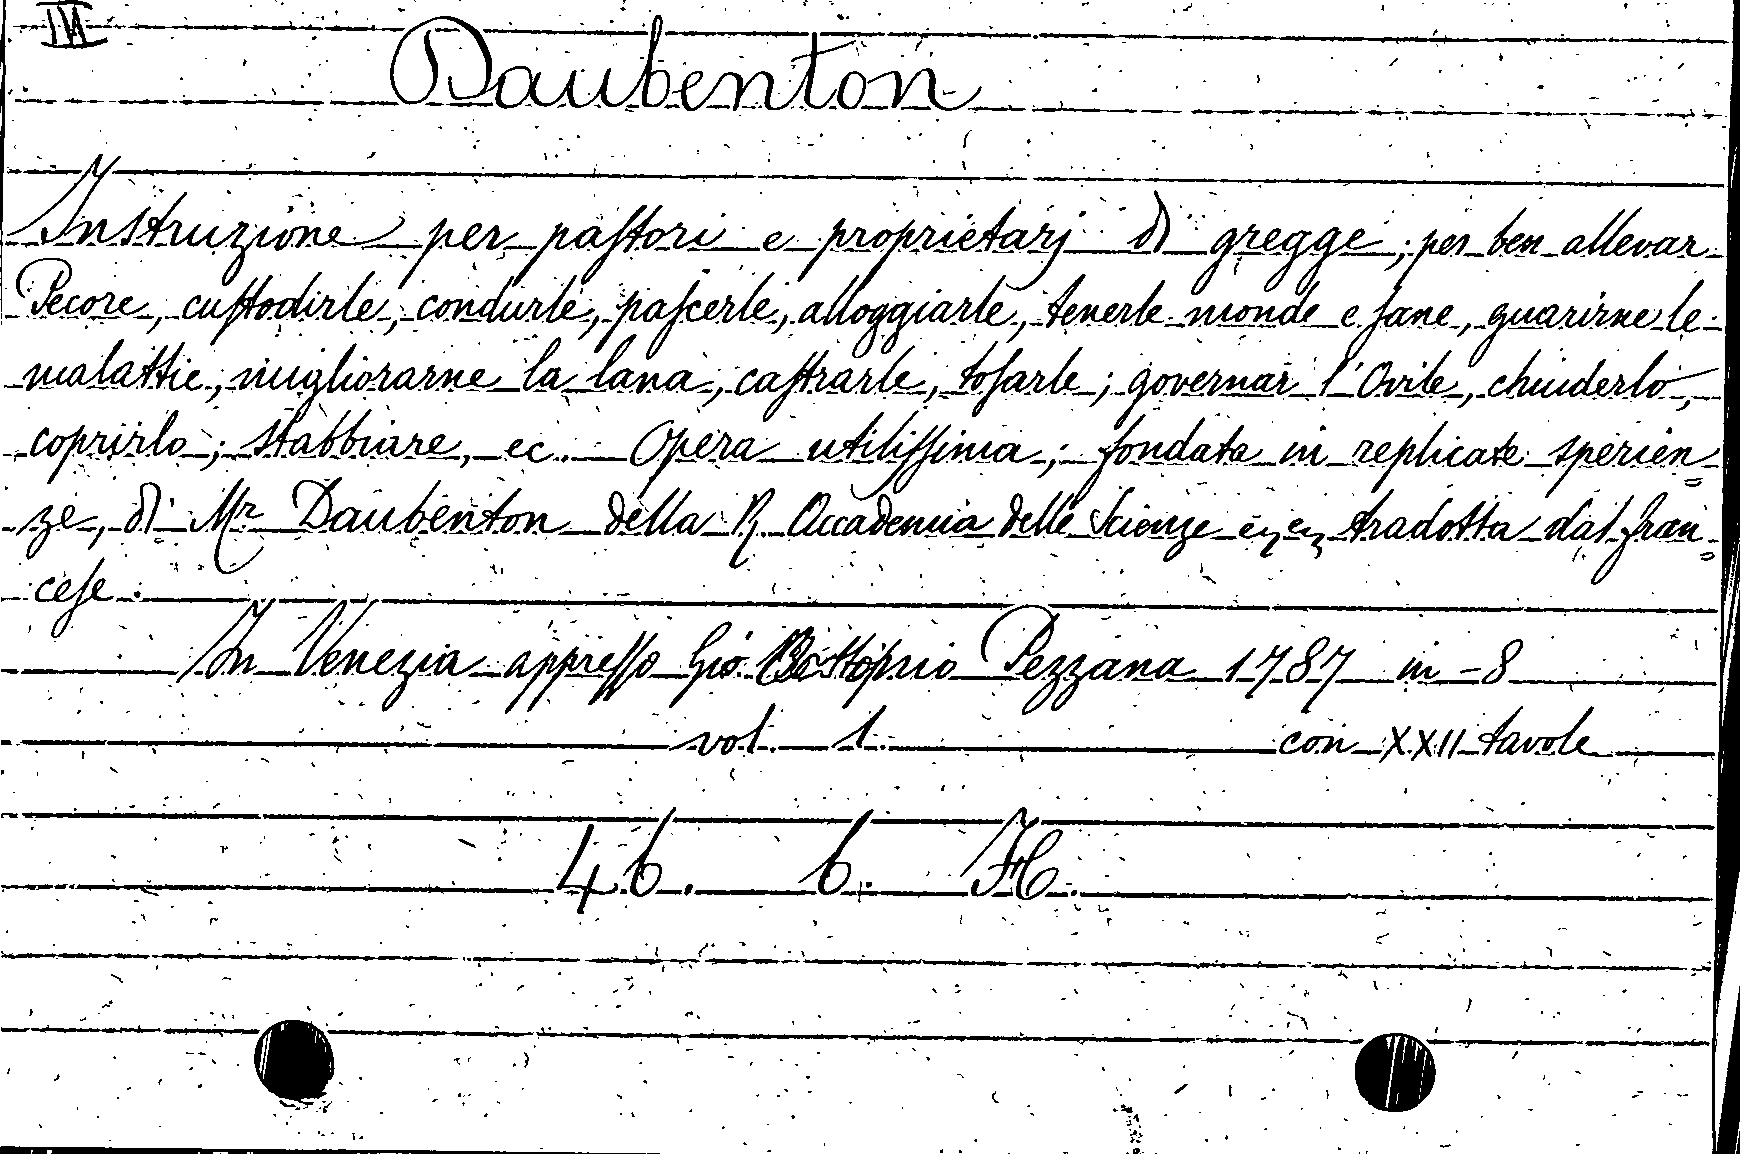 IVI
Daubenton
Instruzione per paſtori e proprietarj di gregge; per ben allevar
Pecore, cuſtodirle, condurle, paſcerle, alloggiarle, tenerle monde e ſane, guarirne le
malattie, migliorarne la lana, caſtrarle, toſarle; governar l'Ovile, chiuderlo,
coprirlo; stabbiare, ec. Opera utiliſſima; fondata in replicate sperien=
ze, di Mr Daubenton della R. Accademia delle Scienze ec, ec, tradotta dal Fran=
ceſe.
In Venezia appreſſo Gio. Pezzana 1787 in-8
vol. 1. con XXII tavole
46. 6. H.